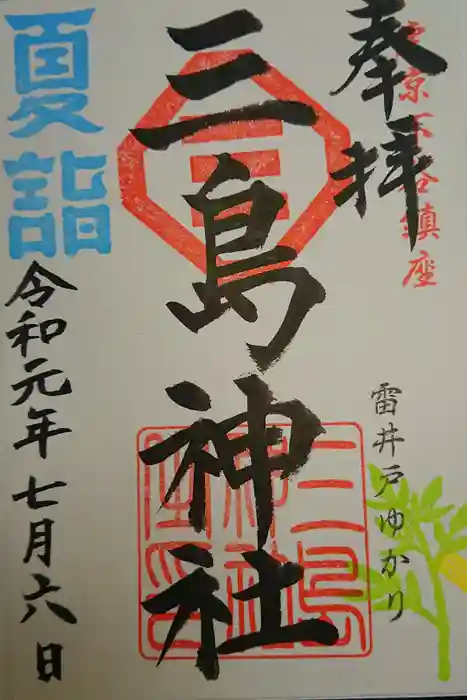 奉拝
東京下谷鎮座
雷井戸ゆかり
三島神社
三
三島神社之印
夏詣
令和元年七月六日